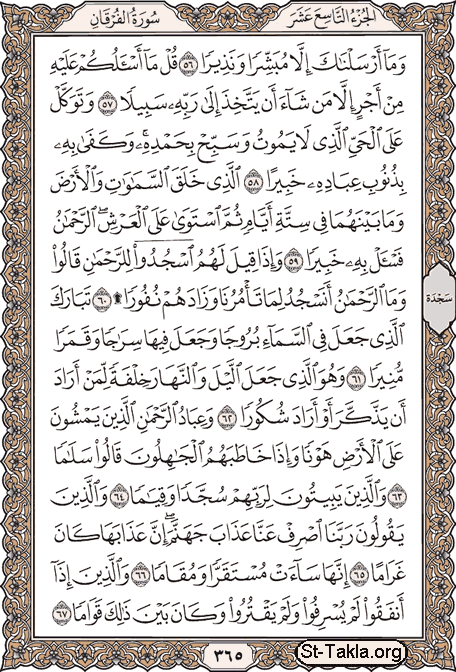 الجُزْءُ التَّاسِعَ عَشَرَ
سُورَةُ الفُرْقَانِ
وَمَآ أَرْسَلْنَٰكَ إِلَّا مُبَشِّرًا وَنَذِيرًا ٥٦ قُلْ مَآ أَسْـَٔلُكُمْ عَلَيْهِ
مِنْ أَجْرٍ إِلَّا مَن شَآءَ أَن يَتَّخِذَ إِلَىٰ رَبِّهِۦ سَبِيلًا ٥٧ وَتَوَكَّلْ
عَلَى ٱلْحَىِّ ٱلَّذِى لَا يَمُوتُ وَسَبِّحْ بِحَمْدِهِۦ ۚ وَكَفَىٰ بِهِۦ
بِذُنُوبِ عِبَادِهِۦ خَبِيرًا ٥٨ ٱلَّذِى خَلَقَ ٱلسَّمَٰوَٰتِ وَٱلْأَرْضَ
وَمَا بَيْنَهُمَا فِى سِتَّةِ أَيَّامٍ ثُمَّ ٱسْتَوَىٰ عَلَى ٱلْعَرْشِ ۚ ٱلرَّحْمَٰنُ
فَسْـَٔلْ بِهِۦ خَبِيرًا ٥٩ وَإِذَا قِيلَ لَهُمُ ٱسْجُدُوا۟ لِلرَّحْمَٰنِ قَالُوا۟
وَمَا ٱلرَّحْمَٰنُ أَنَسْجُدُ لِمَا تَأْمُرُنَا وَزَادَهُمْ نُفُورًا ۩ ٦٠ تَبَارَكَ
ٱلَّذِى جَعَلَ فِى ٱلسَّمَآءِ بُرُوجًا وَجَعَلَ فِيهَا سِرَٰجًا وَقَمَرًا
مُّنِيرًا ٦١ وَهُوَ ٱلَّذِى جَعَلَ ٱلَّيْلَ وَٱلنَّهَارَ خِلْفَةً لِّمَنْ أَرَادَ
أَن يَذَّكَّرَ أَوْ أَرَادَ شُكُورًا ٦٢ وَعِبَادُ ٱلرَّحْمَٰنِ ٱلَّذِينَ يَمْشُونَ
عَلَى ٱلْأَرْضِ هَوْنًا وَإِذَا خَاطَبَهُمُ ٱلْجَٰهِلُونَ قَالُوا۟ سَلَٰمًا
٦٣ وَٱلَّذِينَ يَبِيتُونَ لِرَبِّهِمْ سُجَّدًا وَقِيَٰمًا ٦٤ وَٱلَّذِينَ
يَقُولُونَ رَبَّنَا ٱصْرِفْ عَنَّا عَذَابَ جَهَنَّمَ ۖ إِنَّ عَذَابَهَا كَانَ
غَرَامًا ٦٥ إِنَّهَا سَآءَتْ مُسْتَقَرًّا وَمُقَامًا ٦٦ وَٱلَّذِينَ إِذَآ
أَنفَقُوا۟ لَمْ يُسْرِفُوا۟ وَلَمْ يَقْتُرُوا۟ وَكَانَ بَيْنَ ذَٰلِكَ قَوَامًا ٦٧
سَجْدَة
٣٦٥
St-Takla.org